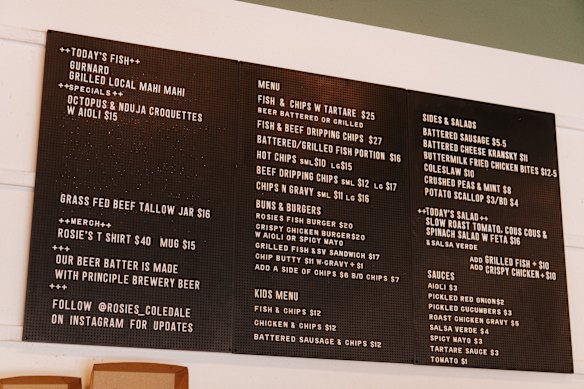 ++TODAY'S FISH++
GURNARD
GRILLED LOCAL MAHI MAHI
++SPECIALS++
OCTOPUS & NDUJA CROQUETTES
W AIOLI $15
GRASS FED BEEF TALLOW JAR $16
++MERCH++
ROSIE'S T SHIRT $40 MUG $15
+++
OUR BEER BATTER IS MADE
WITH PRINCIPLE BREWERY BEER
+++
FOLLOW @ROSIES_COLEDALE
ON INSTAGRAM FOR UPDATES
MENU
FISH & CHIPS W TARTARE $25
BEER BATTERED OR GRILLED
FISH & BEEF DRIPPING CHIPS $27
BATTERED/GRILLED FISH PORTION $16
HOT CHIPS SML $10 LG $15
BEEF DRIPPING CHIPS SML $12 LG $17
CHIPS N GRAVY SML $11 LG $16
BUNS & BURGERS
ROSIES FISH BURGER $20
CRISPY CHICKEN BURGER $20
W AIOLI OR SPICY MAYO
GRILLED FISH & SV SANDWICH $17
CHIP BUTTY $11 W-GRAVY + $1
ADD A SIDE OF CHIPS $6 B/D CHIPS $7
KIDS MENU
FISH & CHIPS $12
CHICKEN & CHIPS $12
BATTERED SAUSAGE & CHIPS $12
SIDES & SALADS
BATTERED SAUSAGE $5-5
BATTERED CHEESE KRANSKY $11
BUTTERMILK FRIED CHICKEN BITES $12-5
COLESLAW $10
CRUSHED PEAS & MINT $8
POTATO SCALLOP $3/BD $4
++TODAY'S SALAD++
SLOW ROAST TOMATO, COUS COUS &
SPINACH SALAD W FETA $16
& SALSA VERDE
ADD GRILLED FISH + $10
ADD CRISPY CHICKEN + $10
SAUCES
AIOLI $3
PICKLED RED ONION $2
PICKLED CUCUMBERS $3
ROAST CHICKEN GRAVY $5
SALSA VERDE $4
SPICY MAYO $3
TARTARE SAUCE $3
TOMATO $1